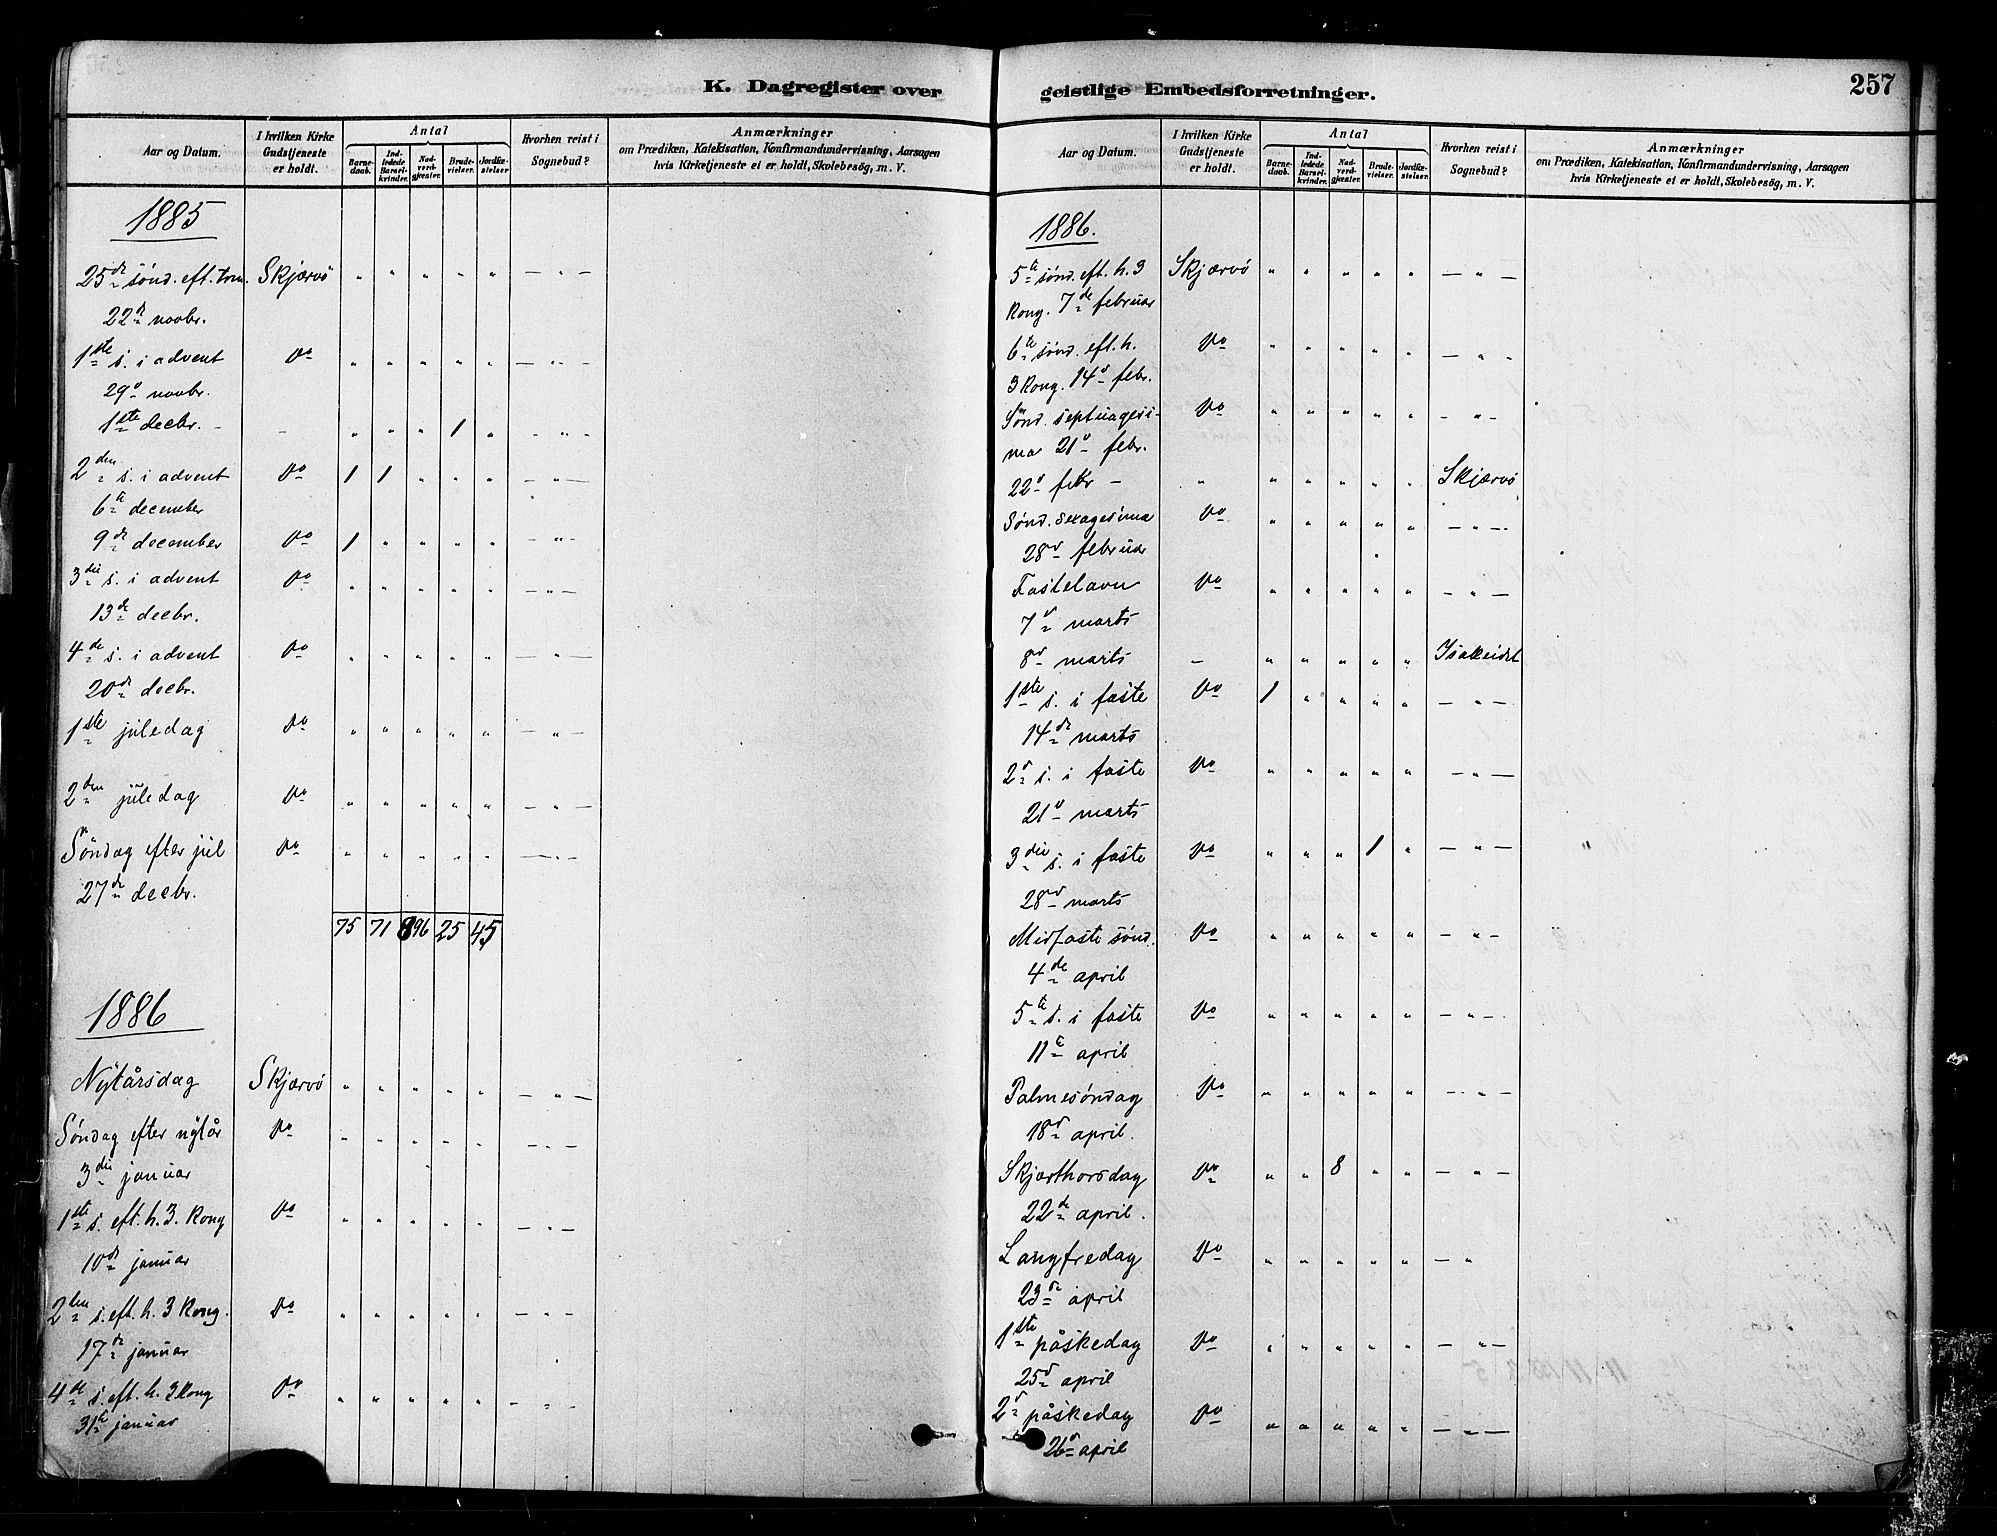 K. Dagregister over
Aar og Datum.
I hvilken Kirke Gudstjeneste er holdt.
Antal
Barne-daab.
Ind-ledede Barsel-kvinder.
Nad-verd-gjæster.
Brude-vielser.
Jordfæ-stelser
Hvorhen reist i Sognebud?
Anmærkninger
om Prædiken, Katekisation, Konfirmandundervisning, Aarsagen
hvis Kirketjeneste ei er holdt, Skolebesög, m. V.
1885
25de sønd. eft. trin. Skjærvö " " " " " — " —
22d novbr.
1ste s. i advent Do " " " " " — " —
29d novbr.
1ste decbr. - - " " " 1 " — " —
2den s. i advent Do 1 1 " " " — " —
6te december
9de december Do 1 " " " " — " —
3die s. i advent Do " " " " " — " —
13de decbr.
4de s. i advent Do " " " " " — " —
20de decbr.
1ste juledag Do " " " " " — " —
2den juledag Do " " " " " — " —
Söndag efter jul Do " " " " " — " —
27de decbr.
75 71 896 25 45
1886
Nytårsdag Skjærvö " " " " " — " —
Söndag efter nytår Do " " " " " — " —
3die januar
1ste s. eft. h. 3. Kong Do " " " " " — " —
10de januar
2den s. eft. h. 3 Kong. Do " " " " " — " —
17de januar
4de s. eft. h. 3 Kong Do " " " " " — " —
31te januar
geistlige Embedsforretninger.
257
Aar og Datum.
I hvilken Kirke Gudstjeneste er holdt.
Antal
Barne-daab.
Ind-ledede Barsel-kvinder.
Nad-verd-gjæster.
Brude-vielser.
Jordfæ-stelser.
Hvorhen reist i Sognebud?
Anmærkninger
om Prædiken, Katekisation, Konfirmandundervisning, Aarsagen
hvis Kirketjeneste ei er holdt, Skolebesög, m. V.
1886.
5te sønd. eft. h. 3 Skjærvö " " " " " — " —
Kong. 7de februar
6te sønd. eft. h. Do " " " " " — " "
3 Kong. 14d febr.
Sønd. septuagesi- Do " " " " " — " —
ma 21d febr.
22d febr — " " " " " " Skjærvö
Sønd. sexagesima Do " " " " " — " —
28d februar
Fastelavn Do " " " " " — " —
7d marts
8d marts — " " " " " Isakeidet
1ste s. i faste Do 1 " " " " — " —
14de marts
2d s. i faste Do " " " " " — " —
21d marts
3die s. i faste Do " " " 1 " — " —
28d marts
Midfaste sønd. Do " " " " " — " —
4de april
5te s. i faste Do " " " " " — " —
11te april
Palmesöndag Do " " " " " — " —
18d april.
Skjærthorsdag Do " " 8 " " — " —
22de april.
Langfredag Do " " " " " — "
23de april
1ste påskedag Do " " " " " — " —
25d april
2d påskedag Do " " " " " — " —
26d april